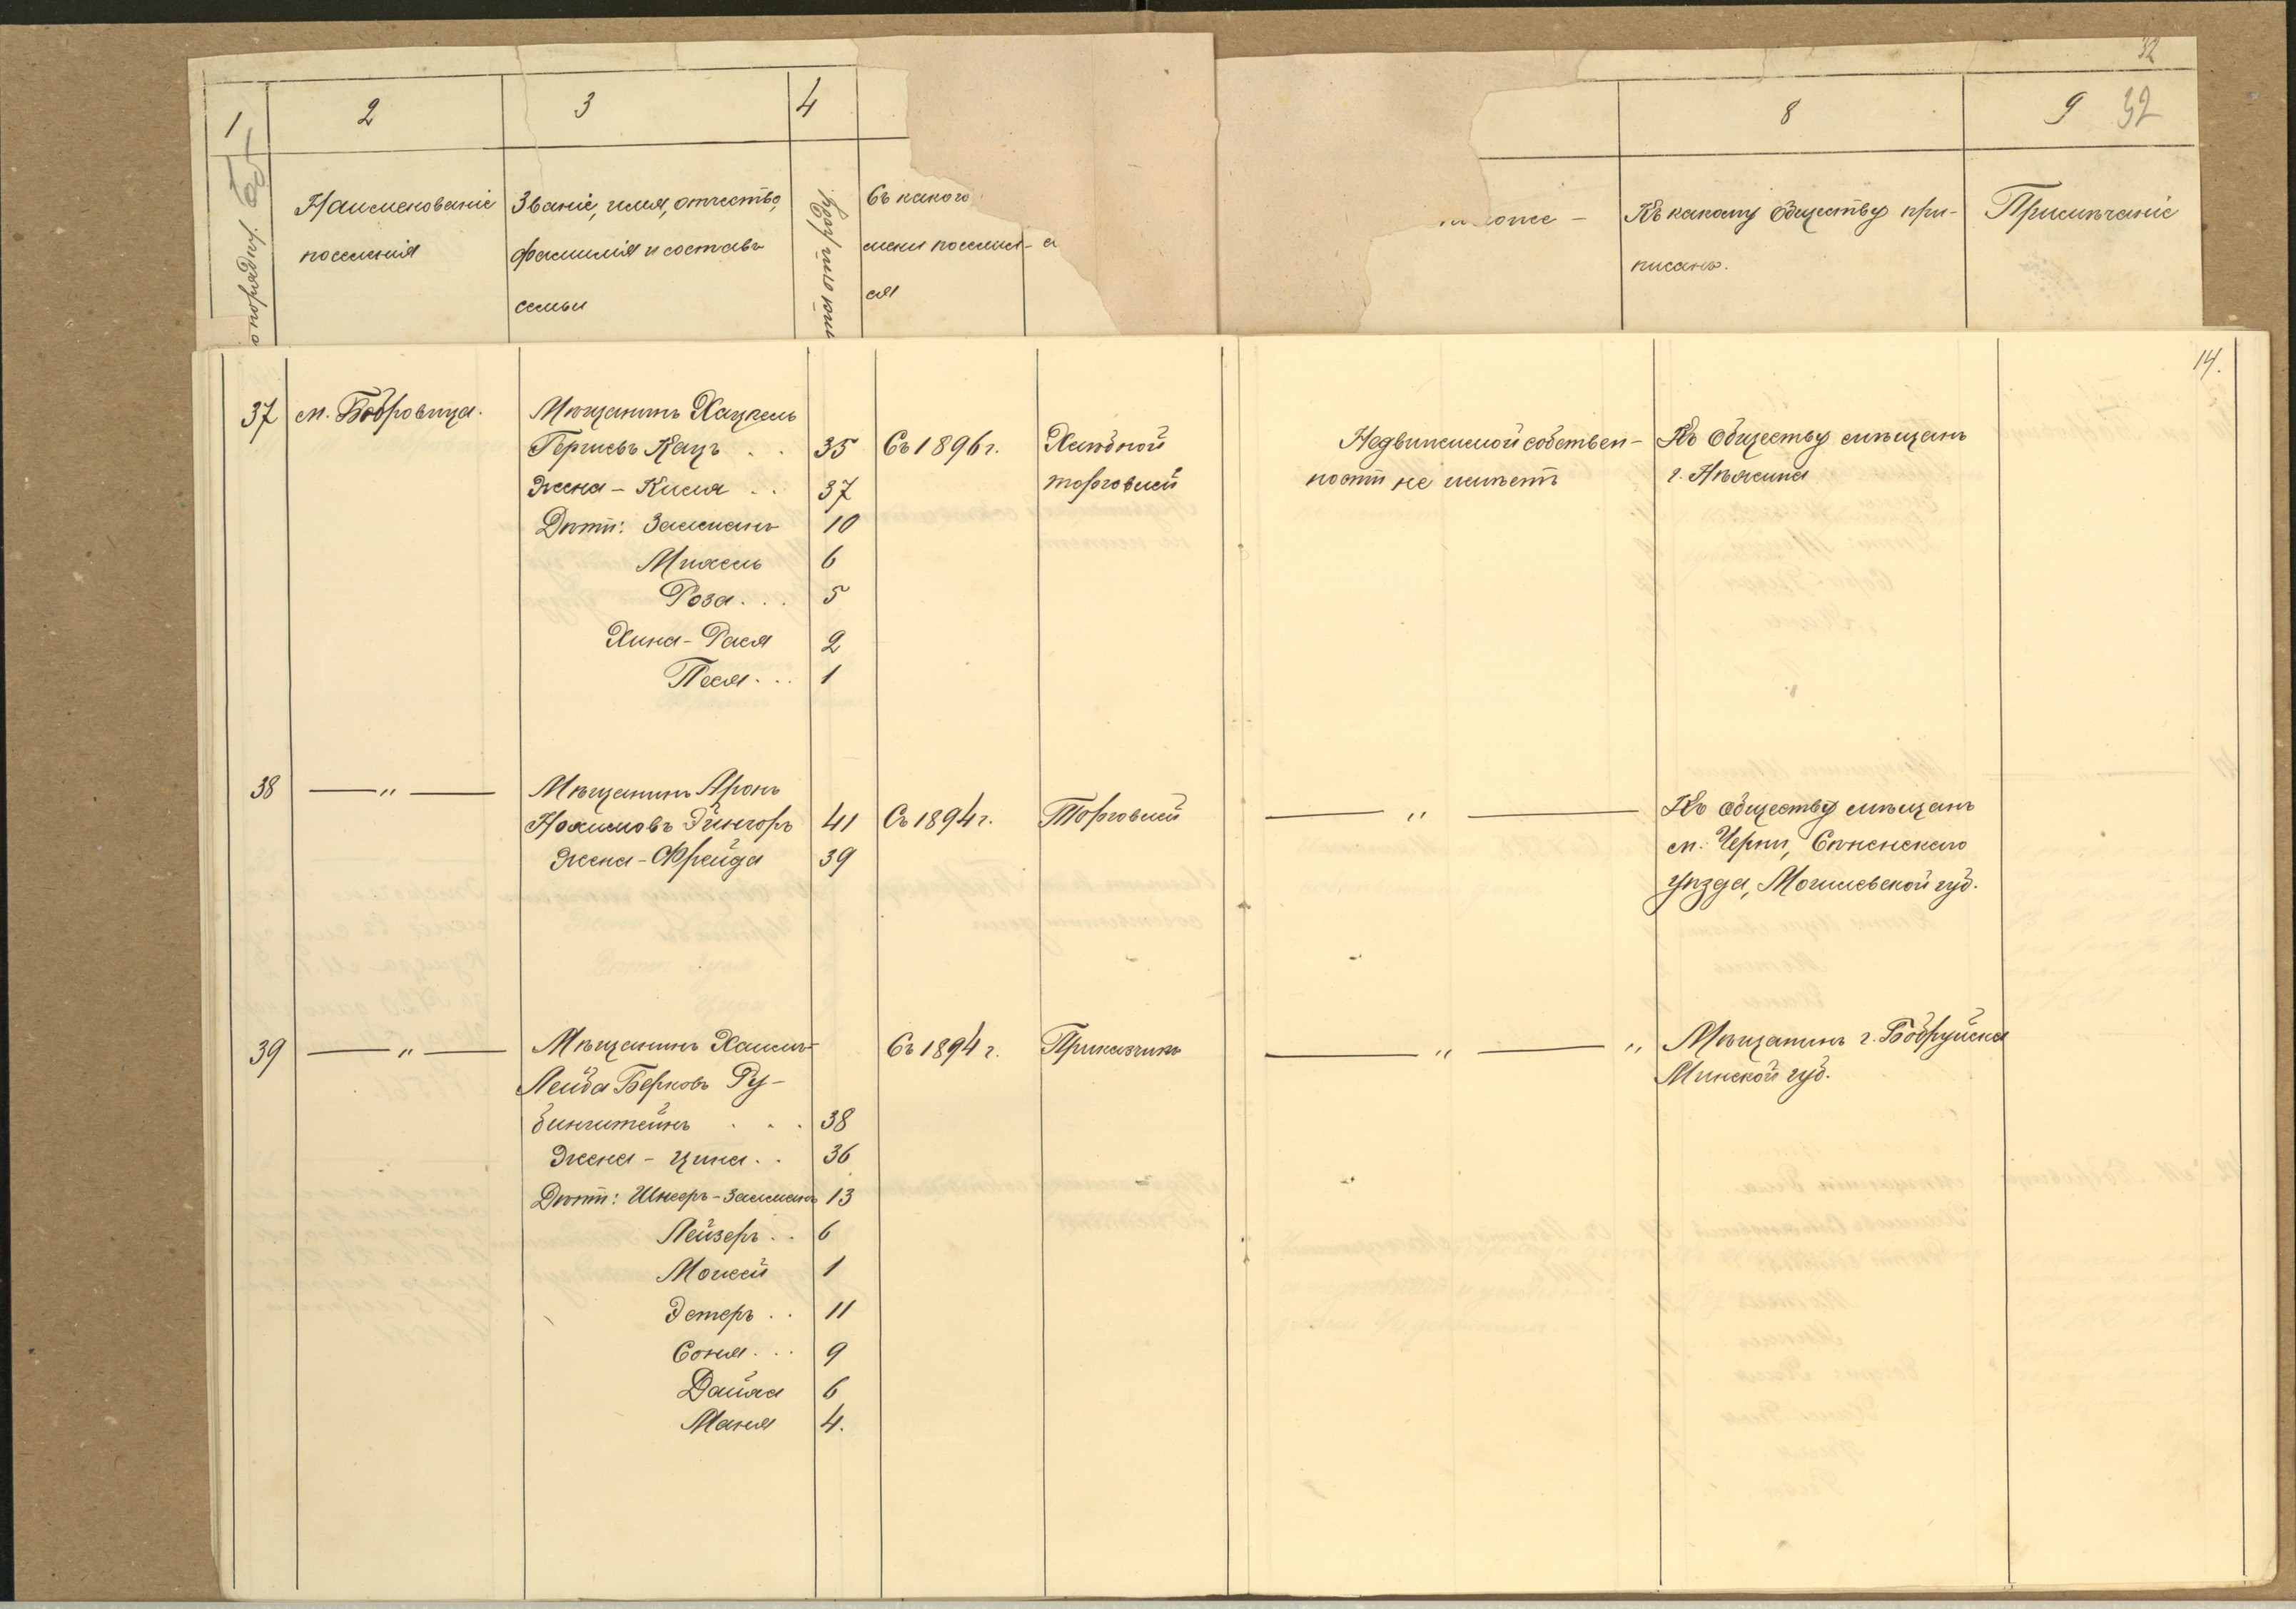 32
1
2
3
4
8
9
32
по порядку.
Наименованіе
поселенія
Званіе, имя, отчество,
фамилія и составъ
семьи
Съ какого
мени поселил-
ся
Къ какому обществу при-
писанъ.
Примѣчаніе
14.
37
м. Бобровица.
Мѣщанинъ Хацкель
Гершевъ Кацъ . .
35
Съ 1896 г.
Хлѣбной
торговлей
Недвижимой собствен-
ности не имѣетъ
Къ обществу мѣщанъ
г. Нѣжина
Жена - Кисля . .
37
Дѣти: Залманъ
10
Михель
6
Роза . . .
5
Хина-Рася
2
Песя . . .
1
38
— " —
Мѣщанинъ Аронъ
Нохимовъ Эйнгоръ
41
Съ 1894 г.
Торговлей
— " —
Къ обществу мѣщанъ
м. Черни, Сѣненскаго
уѣзда, Могилевской губ.
Жена - Фрейда
39
39
— " —
Мѣщанинъ Хаимъ-
Лейба Берковъ Ру-
бинштейнъ . . .
38
Съ 1894 г.
Приказчикъ
— " — "
Мѣщанинъ г. Бобруйска
Минской губ.
Жена - Цина . .
36
Дѣти: Шнееръ-Залманъ
13
Лейзеръ . .
6
Мовсей
1
Эстеръ . .
11
Соня . . .
9
Дайха
6
Маня
4.